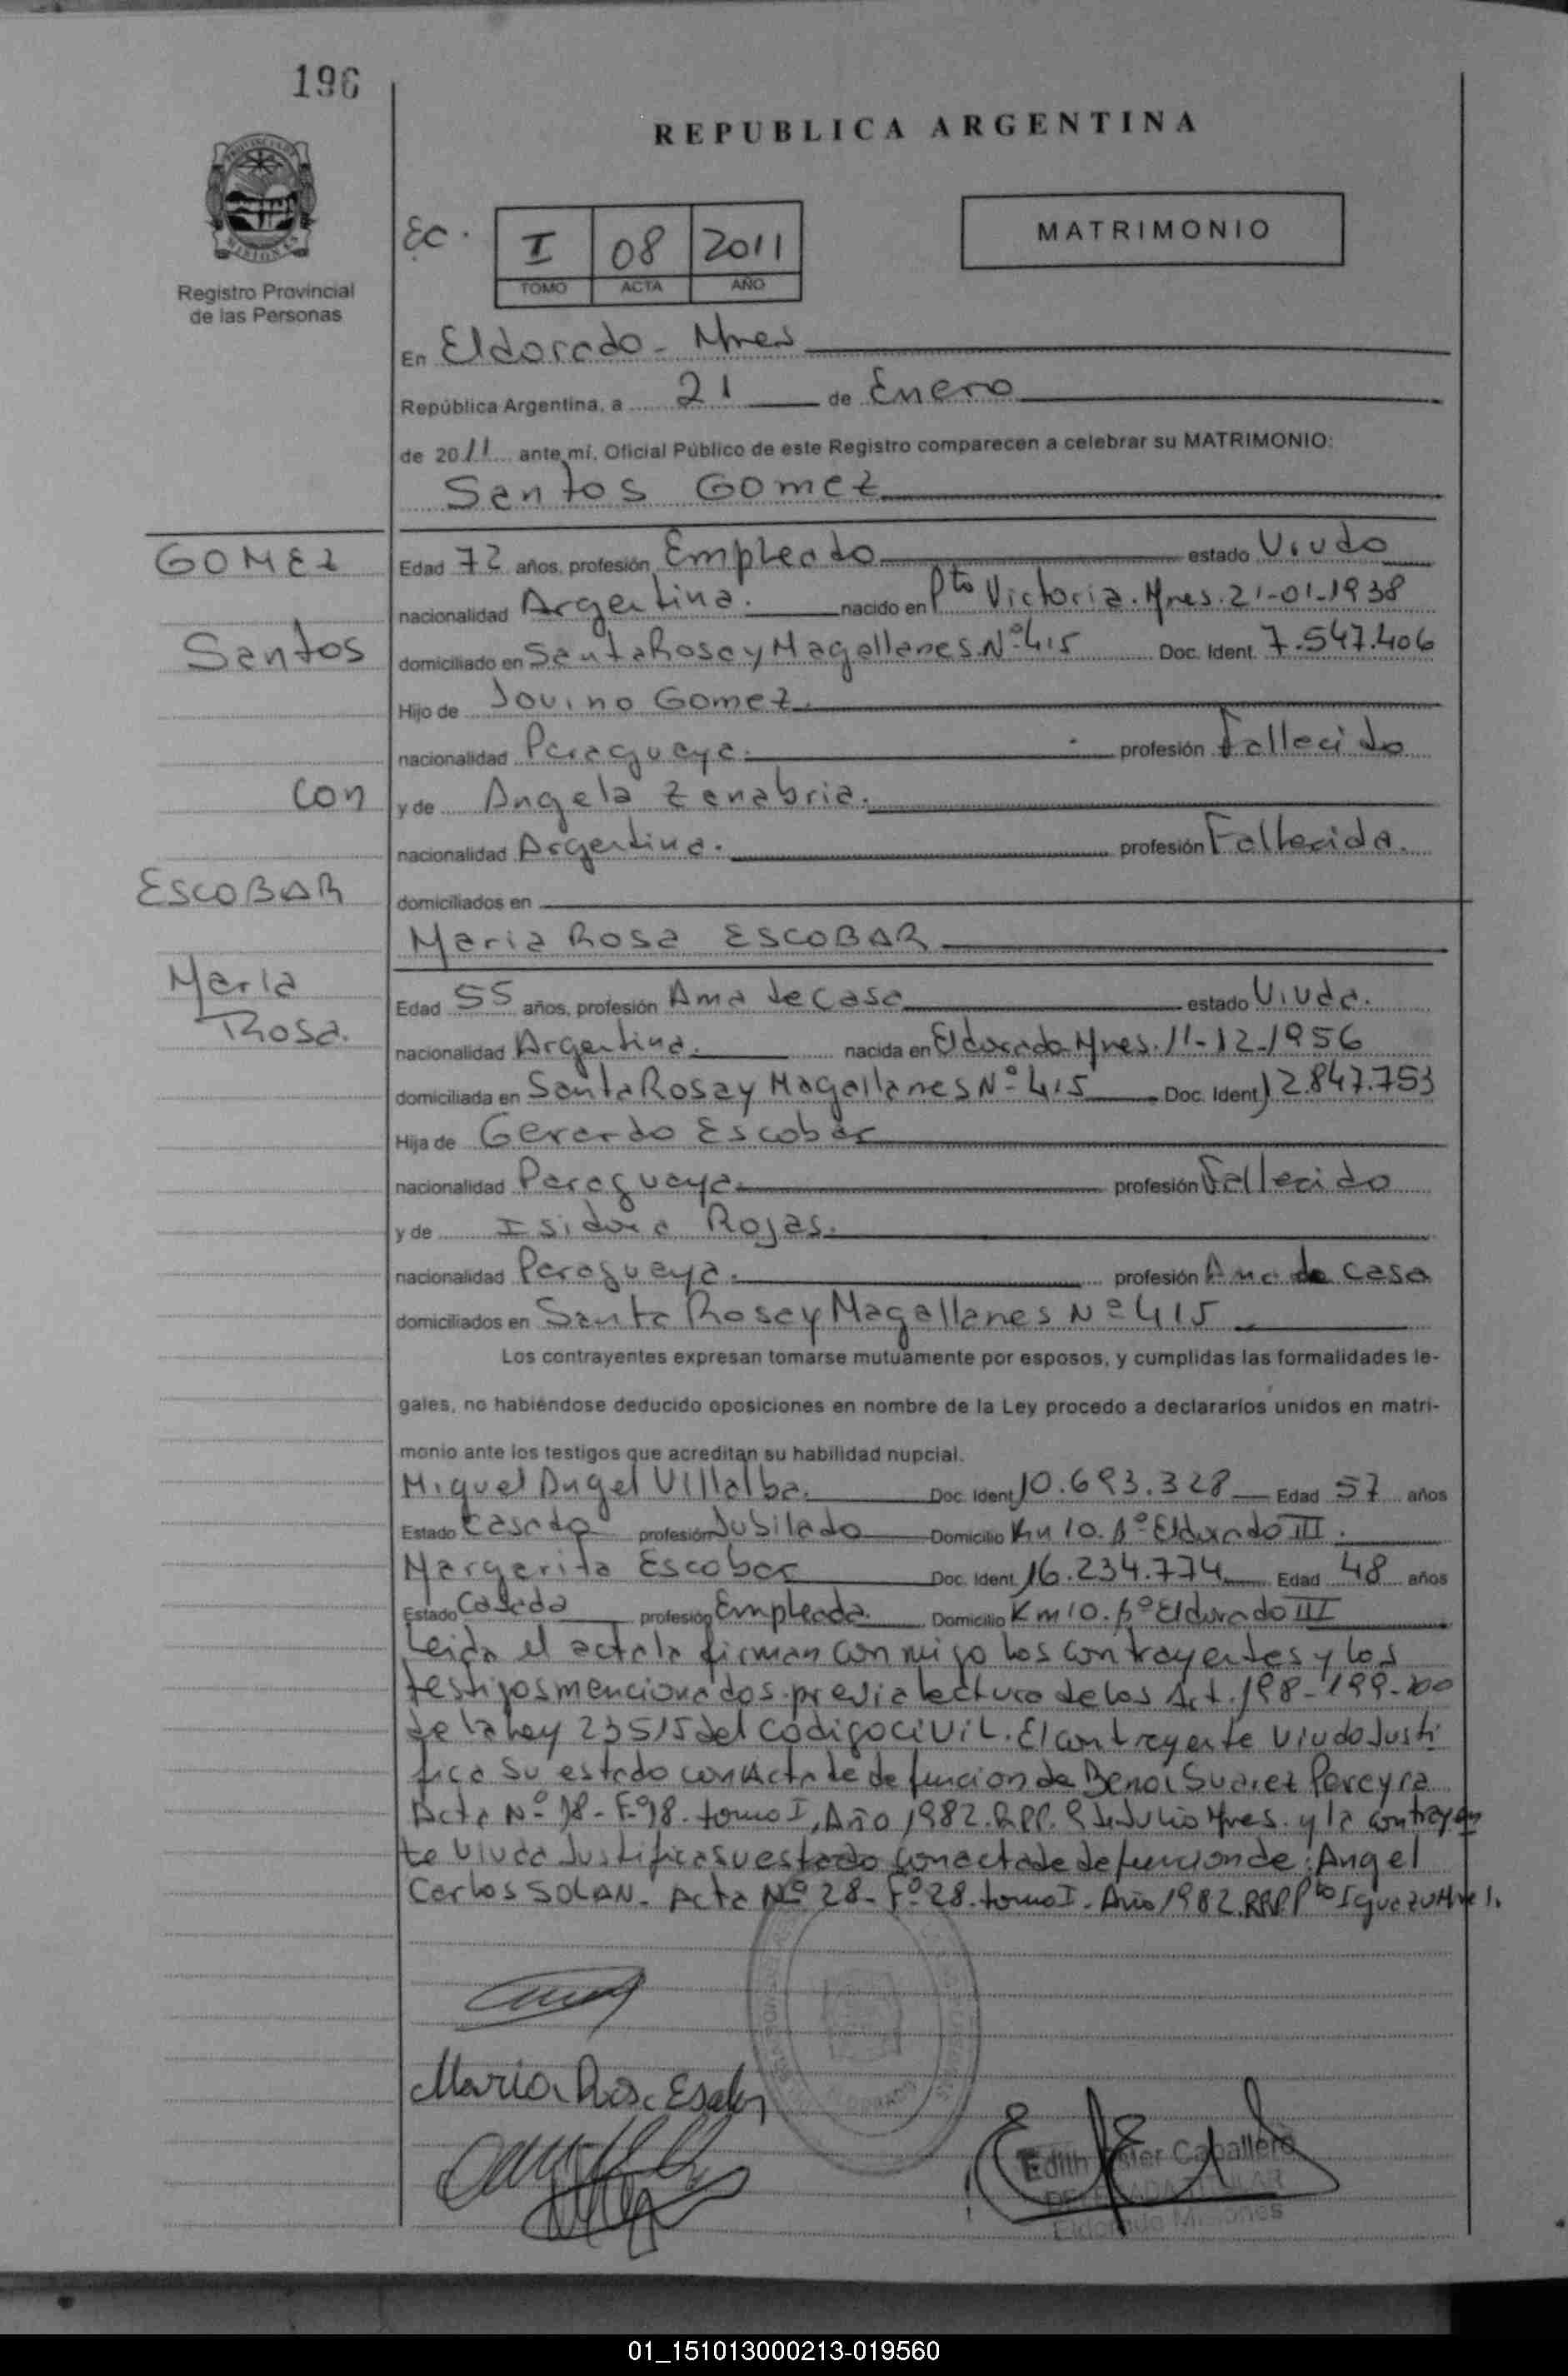 196
REPUBLICA ARGENTINA
PROVINCIA DE
MISIONES
Registro Provincial
de las Personas
EC.
I 08 2011
TOMO ACTA AÑO
MATRIMONIO
En Eldorado - Mnes
República Argentina, a 21 de Enero
de 2011 ante mí, Oficial Público de este Registro comparecen a celebrar su MATRIMONIO:
Santos Gomez
GOMEZ
Edad 72 años, profesión Empleado estado Viudo
nacionalidad Argentina. nacido en Pto Victoria. Mnes. 21-01-1938
Santos
domiciliado en Santa Rosa y Magallanes Nº 415 Doc. Ident. 7.547.406
Hijo de Jovino Gomez.
nacionalidad Paraguaya. profesión Fallecido
con
y de Angela Zanabria.
nacionalidad Argentina. profesión Fallecida.
ESCOBAR
domiciliados en
Maria Rosa ESCOBAR
Maria
Rosa.
Edad 55 años, profesión Ama de casa estado Viuda.
nacionalidad Argentina. nacida en Eldorado Mnes. 11-12-1956
domiciliada en Santa Rosa y Magallanes Nº 415 Doc. Ident 12.847.753
Hija de Gerardo Escobar
nacionalidad Paraguaya profesión Fallecido
y de Isidora Rojas.
nacionalidad Paraguaya. profesión Ama de casa
domiciliados en Santa Rosa y Magallanes Nº 415
Los contrayentes expresan tomarse mutuamente por esposos, y cumplidas las formalidades le-
gales, no habiéndose deducido oposiciones en nombre de la Ley procedo a declararlos unidos en matri-
monio ante los testigos que acreditan su habilidad nupcial.
Miguel Angel Villalba. Doc. Ident 10.693.328 Edad 57 años
Estado Casado profesión Jubilado Domicilio Km 10. Bº Eldorado III.
Margarita Escobar Doc. Ident. 16.234.774 Edad 48 años
Estado Casada profesión Empleada. Domicilio Km 10. Bº Eldorado III
Leida el acta la firman conmigo los contrayentes y los
testigos mencionados previa lectura de los Art. 198-199-200
de la Ley 23515 del codigo civil. El contrayente viudo Justi
fica su estado con Acta de defuncion de Suarez Pereyra
Acta Nº 18 - Fº 18. tomo I, Año 1982. RPP. 9 de Julio Mnes. y la contrayen
te viuda Justifica su estado con acta de defuncion de: Angel
Carlos SOLAN - Acta Nº 28 - Fº 28. tomo I - Año 1982. RPP. Pto Iguazu Mnes.
Maria Rosa Escobar
Edith Ester Caballero
DELEGADA TITULAR
Eldorado Misiones
01_151013000213-019560